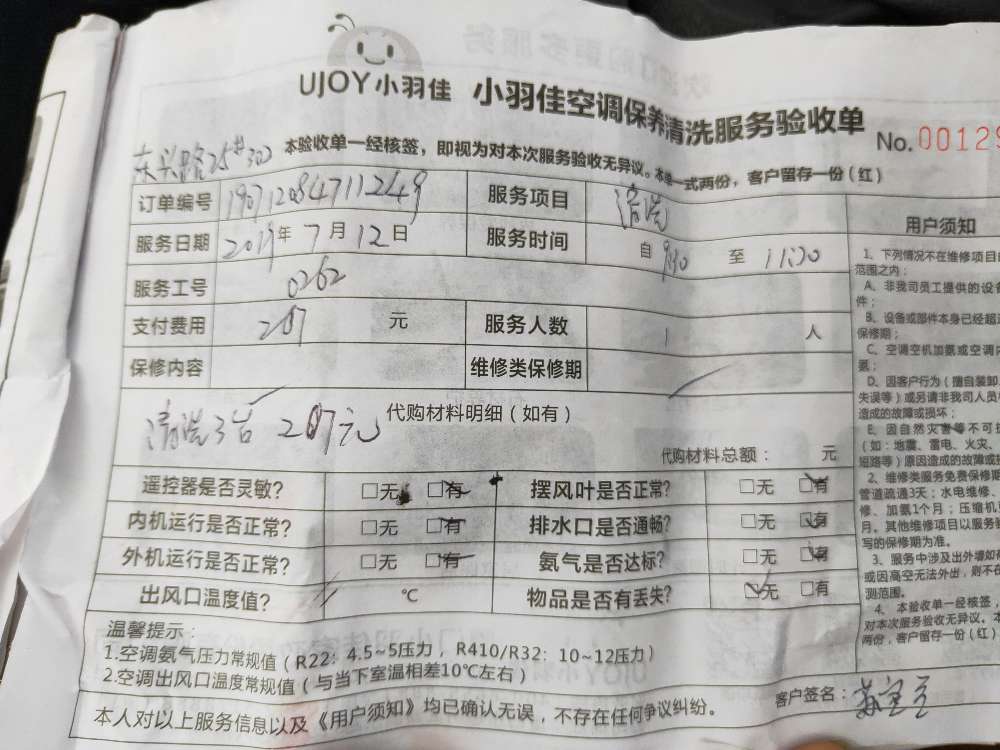 UJOY小羽佳 小羽佳空调保养清洗服务验收单
No.00129
东兴路25#302 本验收单一经核签，即视为对本次服务验收无异议。本单一式两份，客户留存一份（红）
订单编号 190712084711249 服务项目 清洗
服务日期 2019年7月12日 服务时间 自 9:30 至 11:30
服务工号 0262
支付费用 207 元 服务人数 1 人
保修内容 维修类保修期
代购材料明细（如有）
清洗3台 207元
代购材料总额： 元
遥控器是否灵敏? □无 □有 摆风叶是否正常? □无 □有
内机运行是否正常? □无 □有 排水口是否通畅? □无 □有
外机运行是否正常? □无 □有 氨气是否达标? □无 □有
出风口温度值? ℃ 物品是否有丢失? □无 □有
温馨提示：
1.空调氨气压力常规值（R22：4.5~5压力，R410/R32：10~12压力）
2.空调出风口温度常规值（与当下室温相差10℃左右）
本人对以上服务信息以及《用户须知》均已确认无误，不存在任何争议纠纷。
客户签名：
用户须知
1、下列情况不在维修项目
范围之内：
A、非我司员工提供的设备
件；
B、设备或部件本身已经超过
保修期；
C、空调空机加氨或空调内
氨；
D、因客户行为（擅自装卸、
失误等）或另请非我司人员
造成的故障或损坏；
E、因自然灾害等不可抗
（如：地震、雷电、火灾、
短路等）原因造成的故障或
2、维修类服务免费保修期
管道疏通3天；水电维修、
修、加氨1个月；压缩机
月。其他维修项目以服务
写的保修期为准。
3、服务中涉及出外墙如
或因高空无法外出，则不在
测范围。
4、本验收单一经核签，
对本次服务验收无异议。本
两份，客户留存一份（红）